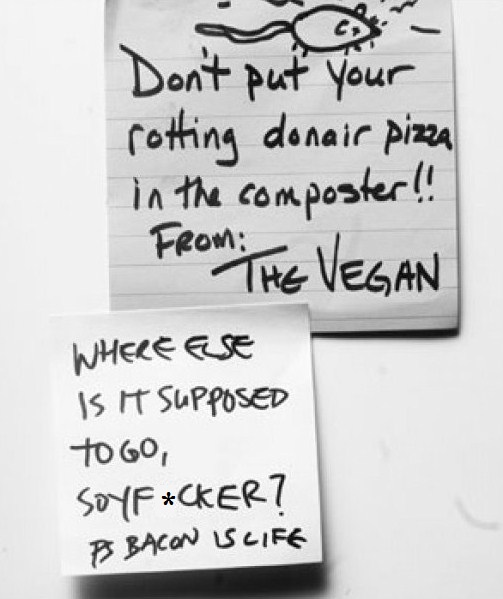 Don't put your
rotting donair pizza
in the composter!!
FROM:
THE VEGAN
WHERE ELSE
IS IT SUPPOSED
TO GO,
SOYF*CKER?
PS BACON IS LIFE